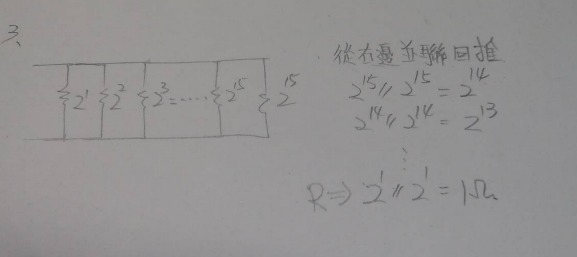 3、
2¹ 2² 2³ ...... 2¹⁵ 2¹⁵
從右邊並聯回推
2¹⁵ // 2¹⁵ = 2¹⁴
2¹⁴ // 2¹⁴ = 2¹³
⋮
R ⇒ 2¹ // 2¹ = 1Ω